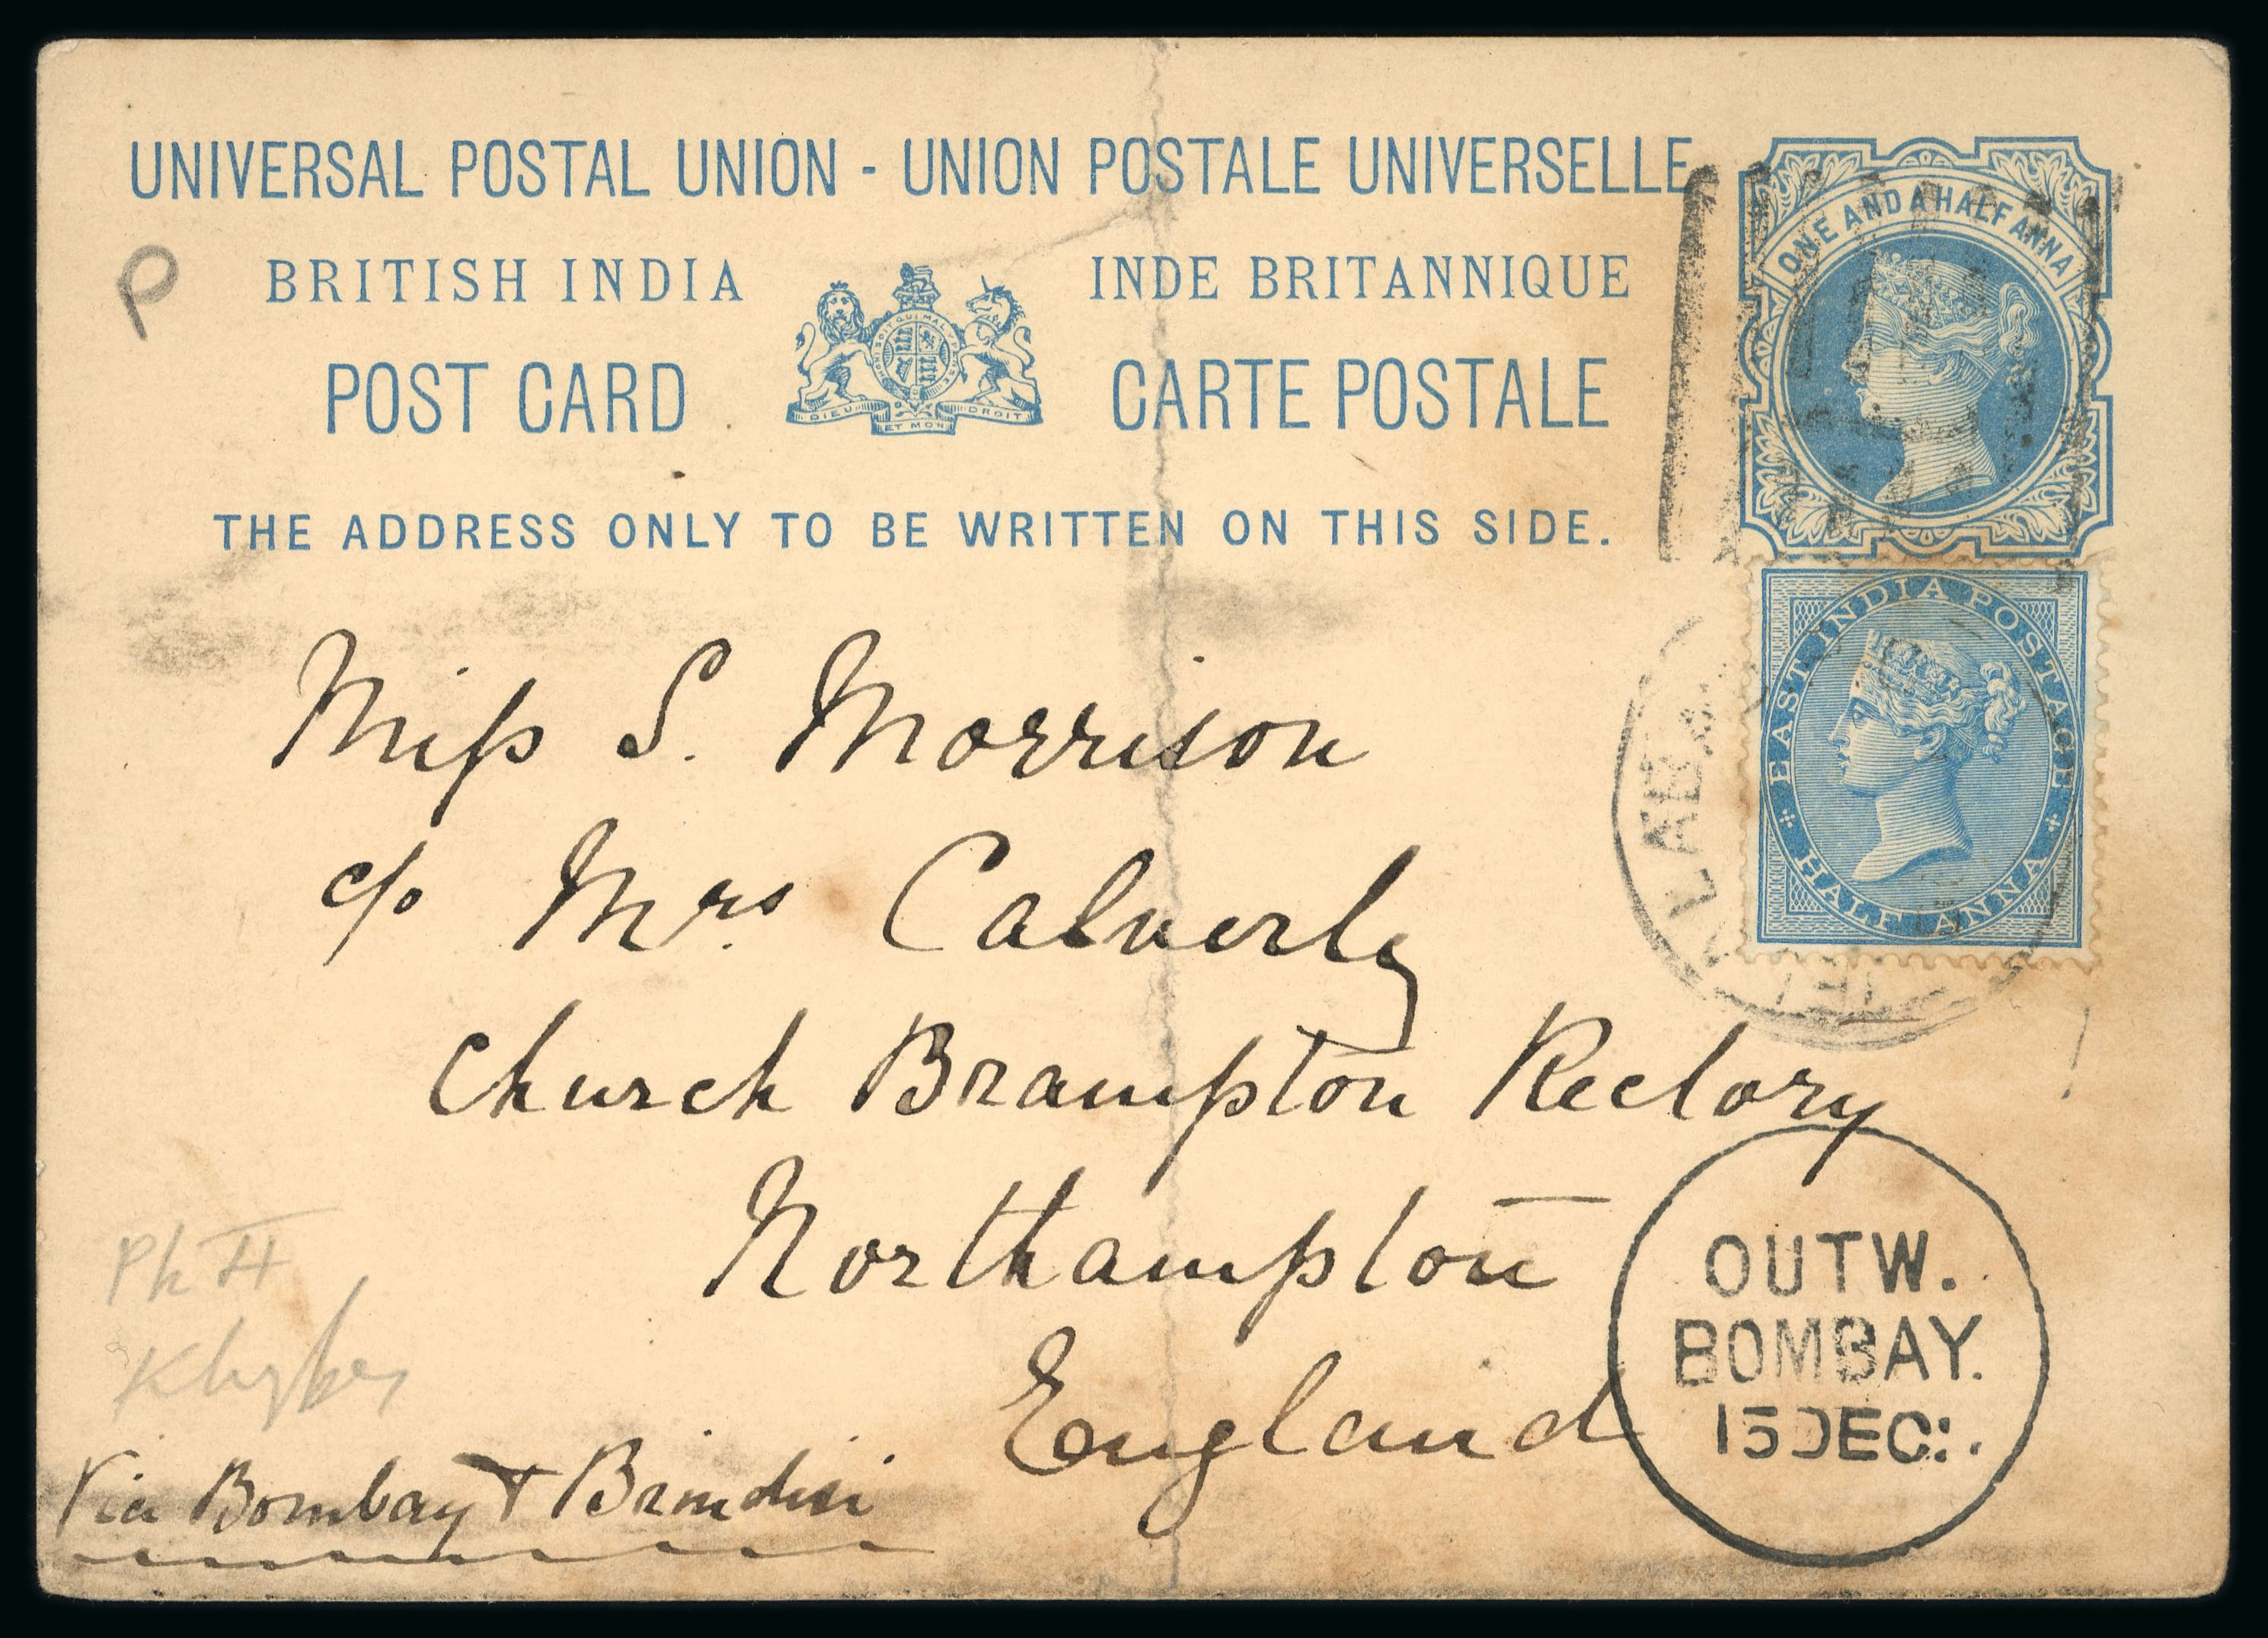 UNIVERSAL POSTAL UNION - UNION POSTALE UNIVERSELLE
BRITISH INDIA INDE BRITANNIQUE
POST CARD CARTE POSTALE
HONI SOIT QUI MAL Y PENSE
DIEU ET MON DROIT
THE ADDRESS ONLY TO BE WRITTEN ON THIS SIDE.
ONE AND A HALF ANNA
EAST INDIA POSTAGE
HALF ANNA
P
Miss S. Morrison
c/o Mrs Calverly
Church Brampton Rectory
Northampton
England
Ph II
Khyber
Via Bombay & Brindisi
OUTW.
BOMBAY.
15 DEC:.